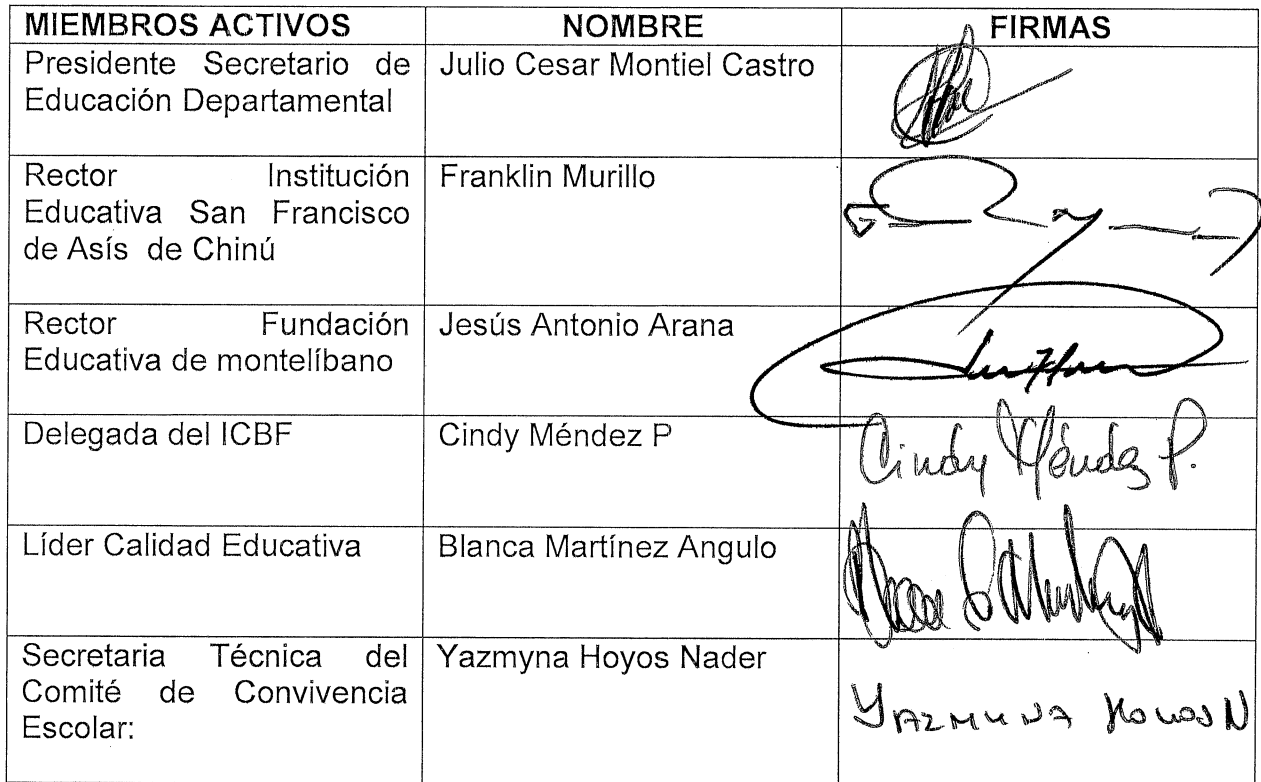 MIEMBROS ACTIVOS NOMBRE FIRMAS
Presidente Secretario de Educación Departamental Julio Cesar Montiel Castro
Rector Institución Educativa San Francisco de Asís de Chinú Franklin Murillo
Rector Fundación Educativa de montelíbano Jesús Antonio Arana
Delegada del ICBF Cindy Méndez P Cindy Méndez P.
Líder Calidad Educativa Blanca Martínez Angulo
Secretaria Técnica del Comité de Convivencia Escolar: Yazmyna Hoyos Nader YAZMYNA HOYOS N